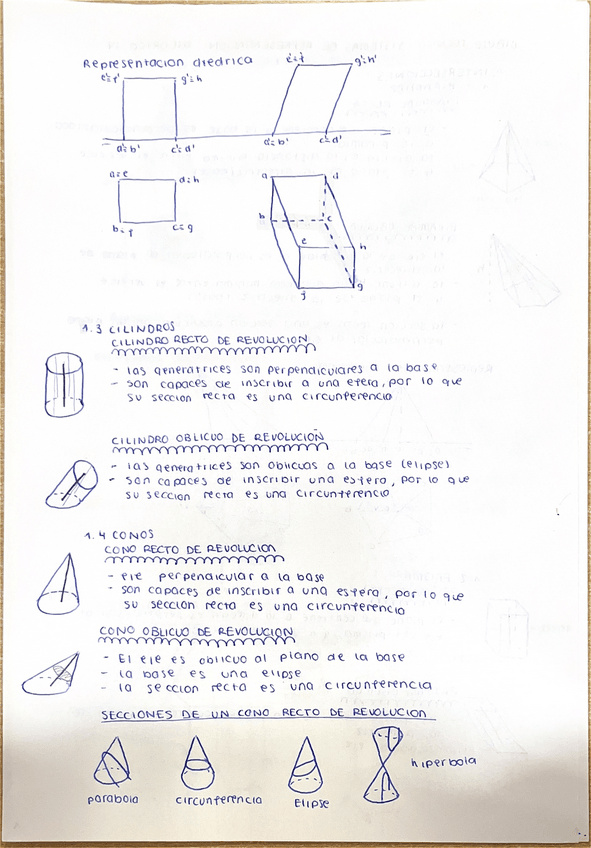 Representacion diedrica
e'≡f' g'≡h
e'≡f' g'≡h'
a'≡b' c'≡d' a'≡b' c'≡d'
a≡e d≡h
b≡f c≡g
a d
b c
e h
f g
1.3 CILINDROS
CILINDRO RECTO DE REVOLUCION
- las generatrices son perpendiculares a la base
- son capaces de inscribir a una esfera, por lo que
su seccion recta es una circunferencia
CILINDRO OBLICUO DE REVOLUCION
- las generatrices son oblicuas a la base (elipse)
- son capaces de inscribir una esfera, por lo que
su seccion recta es una circunferencia
1.4 CONOS
CONO RECTO DE REVOLUCION
- eje perpendicular a la base
- son capaces de inscribir a una esfera, por lo que
su seccion recta es una circunferencia
CONO OBLICUO DE REVOLUCION
- El eje es oblicuo al plano de la base
- la base es una elipse
- la seccion recta es una circunferencia
SECCIONES DE UN CONO RECTO DE REVOLUCION
hiperbola
parabola circunferencia Elipse